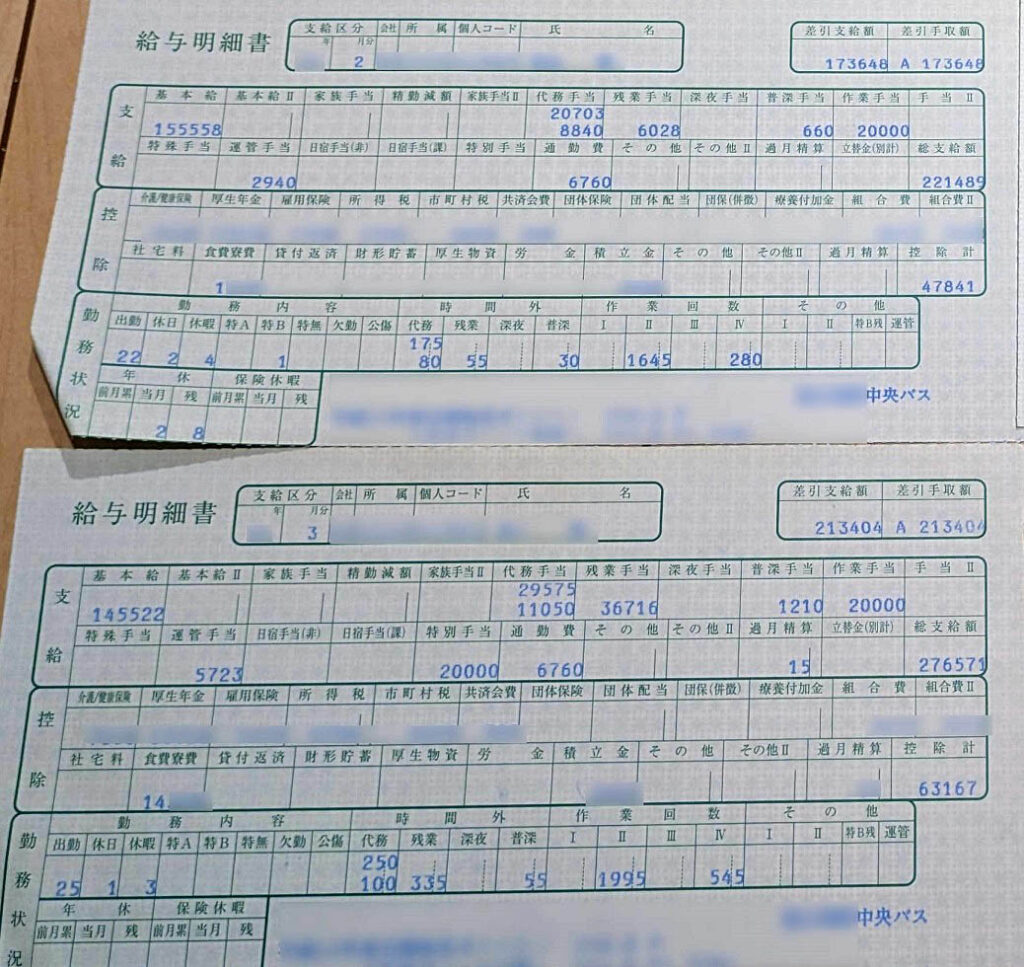 給与明細書
支給区分 会社 所属 個人コード 氏名
年 月分
2
差引支給額 差引手取額
173648 A 173648
支給
基本給 基本給Ⅱ 家族手当 精勤減額 家族手当Ⅱ 代務手当 残業手当 深夜手当 普深手当 作業手当 手当Ⅱ
20703
155558 8840 6028 660 20000
特殊手当 運管手当 日宿手当(非) 日宿手当(課) 特別手当 通勤費 その他 その他Ⅱ 過月精算 立替金(別計) 総支給額
2940 6760 221489
控除
介護/健康保険 厚生年金 雇用保険 所得税 市町村税 共済会費 団体保険 団体配当 団保(併徴) 療養付加金 組合費 組合費Ⅱ
社宅料 食費寮費 貸付返済 財形貯蓄 厚生物資 労金 積立金 その他 その他Ⅱ 過月精算 控除計
1 47841
勤務状況
勤務内容 時間外 作業回数 その他
出勤 休日 休暇 特A 特B 特無 欠勤 公傷 代務 残業 深夜 普深 Ⅰ Ⅱ Ⅲ Ⅳ Ⅰ Ⅱ 特B残 運管
175
22 2 4 1 80 55 30 1645 280
年休 保険休暇
前月累 当月 残 前月累 当月 残
2 8
中央バス
給与明細書
支給区分 会社 所属 個人コード 氏名
年 月分
3
差引支給額 差引手取額
213404 A 213404
支給
基本給 基本給Ⅱ 家族手当 精勤減額 家族手当Ⅱ 代務手当 残業手当 深夜手当 普深手当 作業手当 手当Ⅱ
29575
145522 11050 36716 1210 20000
特殊手当 運管手当 日宿手当(非) 日宿手当(課) 特別手当 通勤費 その他 その他Ⅱ 過月精算 立替金(別計) 総支給額
5723 20000 6760 15 276571
控除
介護/健康保険 厚生年金 雇用保険 所得税 市町村税 共済会費 団体保険 団体配当 団保(併徴) 療養付加金 組合費 組合費Ⅱ
社宅料 食費寮費 貸付返済 財形貯蓄 厚生物資 労金 積立金 その他 その他Ⅱ 過月精算 控除計
14 63167
勤務状況
勤務内容 時間外 作業回数 その他
出勤 休日 休暇 特A 特B 特無 欠勤 公傷 代務 残業 深夜 普深 Ⅰ Ⅱ Ⅲ Ⅳ Ⅰ Ⅱ 特B残 運管
250
25 1 3 100 335 55 1995 545
年休 保険休暇
前月累 当月 残 前月累 当月 残
中央バス